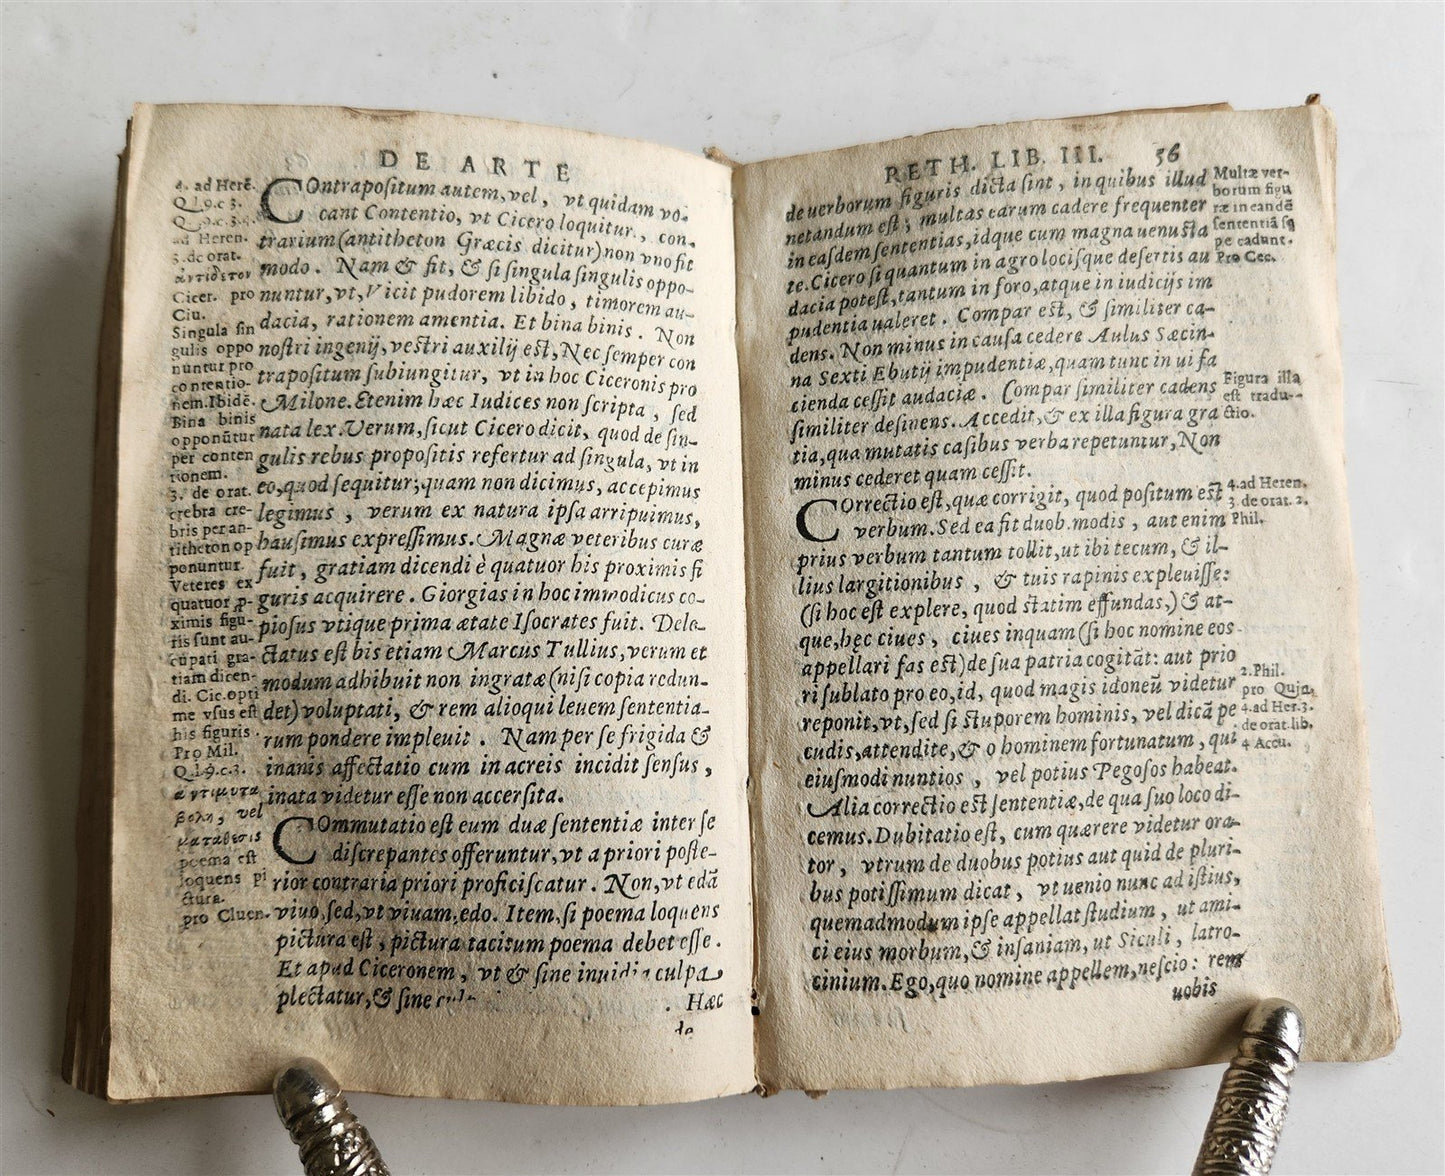 DE ARTE
4. ad Herē.
Q l.9.c 3.
ad Heren.
3. de orat.
ἀντίθετον
Cicer. pro
Clu.
Singula sin
gulis oppo
nuntur pro
contentio-
nem. Ibidē.
Bina binis
opponūtur
per conten
tionem.
3. de orat.
crebra cre-
bris per an-
titheton op
ponuntur.
Veteres ex
quatuor ꝓ-
ximis figu-
ris sunt au-
cupati gra-
tiam dicen-
di. Cic. opti
me vsus est
his figuris.
Pro Mil.
Q l.9.c.3.
ἀντιμετα
βολή, vel
μετάθεσις
poema est
loquens pi
ctura.
pro Cluen.
COntrapositum autem, vel, vt quidam vo-
cant Contentio, vt Cicero loquitur, con-
trarium (antitheton Græcis dicitur) non vno fit
modo. Nam & fit, & si singula singulis oppo-
nuntur, vt, Vicit pudorem libido, timorem au-
dacia, rationem amentia. Et bina binis. Non
nostri ingenij, vestri auxilij est, Nec semper con
trapositum subiungitur, vt in hoc Ciceronis pro
Milone. Etenim hæc Iudices non scripta, sed
nata lex. Verum, sicut Cicero dicit, quod de sin-
gulis rebus propositis refertur ad singula, vt in
eo, quod sequitur; quam non dicimus, accepimus
legimus, verum ex natura ipsa arripuimus,
hausimus expressimus. Magnæ veteribus curæ
fuit, gratiam dicendi è quatuor his proximis fi
guris acquirere. Giorgias in hoc immodicus co-
piosus vtique prima ætate Isocrates fuit. Dele-
ctatus est his etiam Marcus Tullius, verum et
modum adhibuit non ingratæ (nisi copia redun-
det) voluptati, & rem alioqui leuem sententia-
rum pondere impleuit. Nam per se frigida &
inanis affectatio cum in acreis incidit sensus,
inata videtur esse non accersita.
COmmutatio est eum duæ sententiæ inter se
discrepantes offeruntur, vt a priori poste-
rior contraria priori proficiscatur. Non, vt edā
viuo, sed, vt viuam, edo. Item, si poema loquens
pictura est, pictura tacitum poema debet esse.
Et apud Ciceronem, vt & sine inuidia culpa
plectatur, & sine . Hæc
de
RETH. LIB. III. 56
de uerborum figuris dicta sint, in quibus illud
netandum est; multas earum cadere frequenter
in easdem sententias, idque cum magna uenusta
te. Cicero si quantum in agro locisque desertis au
dacia potest, tantum in foro, atque in iudicijs im
pudentia ualeret. Compar est, & similiter ca-
dens. Non minus in causa cedere Aulus Sæcin-
na Sexti Ebutij impudentiæ, quam tunc in ui fa
cienda cessit audaciæ. Compar similiter cadens
similiter desinens. Accedit, & ex illa figura gra
tia, qua mutatis casibus verba repetuntur, Non
minus cederet quam cessit.
COrrectio est, quæ corrigit, quod positum est
verbum. Sed ea fit duob. modis, aut enim
prius verbum tantum tollit, ut ibi tecum, & il-
lius largitionibus, & tuis rapinis expleuisse:
(si hoc est explere, quod statim effundas,) & at-
que, hęc ciues, ciues inquam (si hoc nomine eos
appellari fas est) de sua patria cogitāt: aut prio
ri sublato pro eo, id, quod magis idoneū videtur
reponit, vt, sed si stuporem hominis, vel dicā pe
cudis, attendite, & o hominem fortunatum, qui
eiusmodi nuntios, vel potius Pegosos habeat.
Alia correctio est sententiæ, de qua suo loco di-
cemus. Dubitatio est, cum quærere videtur ora-
tor, vtrum de duobus potius aut quid de pluri-
bus potissimum dicat, vt uenio nunc ad istius,
quemadmodum ipse appellat studium, ut ami-
ci eius morbum, & insaniam, ut Siculi, latro-
cinium. Ego, quo nomine appellem, nescio: rem
uobis
Multæ ver-
borum figu
ræ in eandē
sententiā sę
pe cadunt.
Pro Cec.
Figura illa
est tradu-
ctio.
4. ad Heren.
3 de orat. 2.
Phil.
2. Phil.
pro Quin.
4. ad Her. 3.
de orat. lib.
4 Accu.